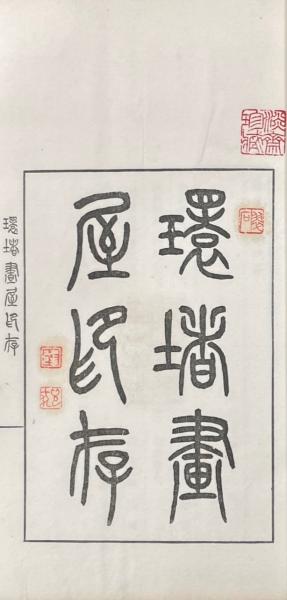 環堵畫
屋印存
環堵畫屋印存